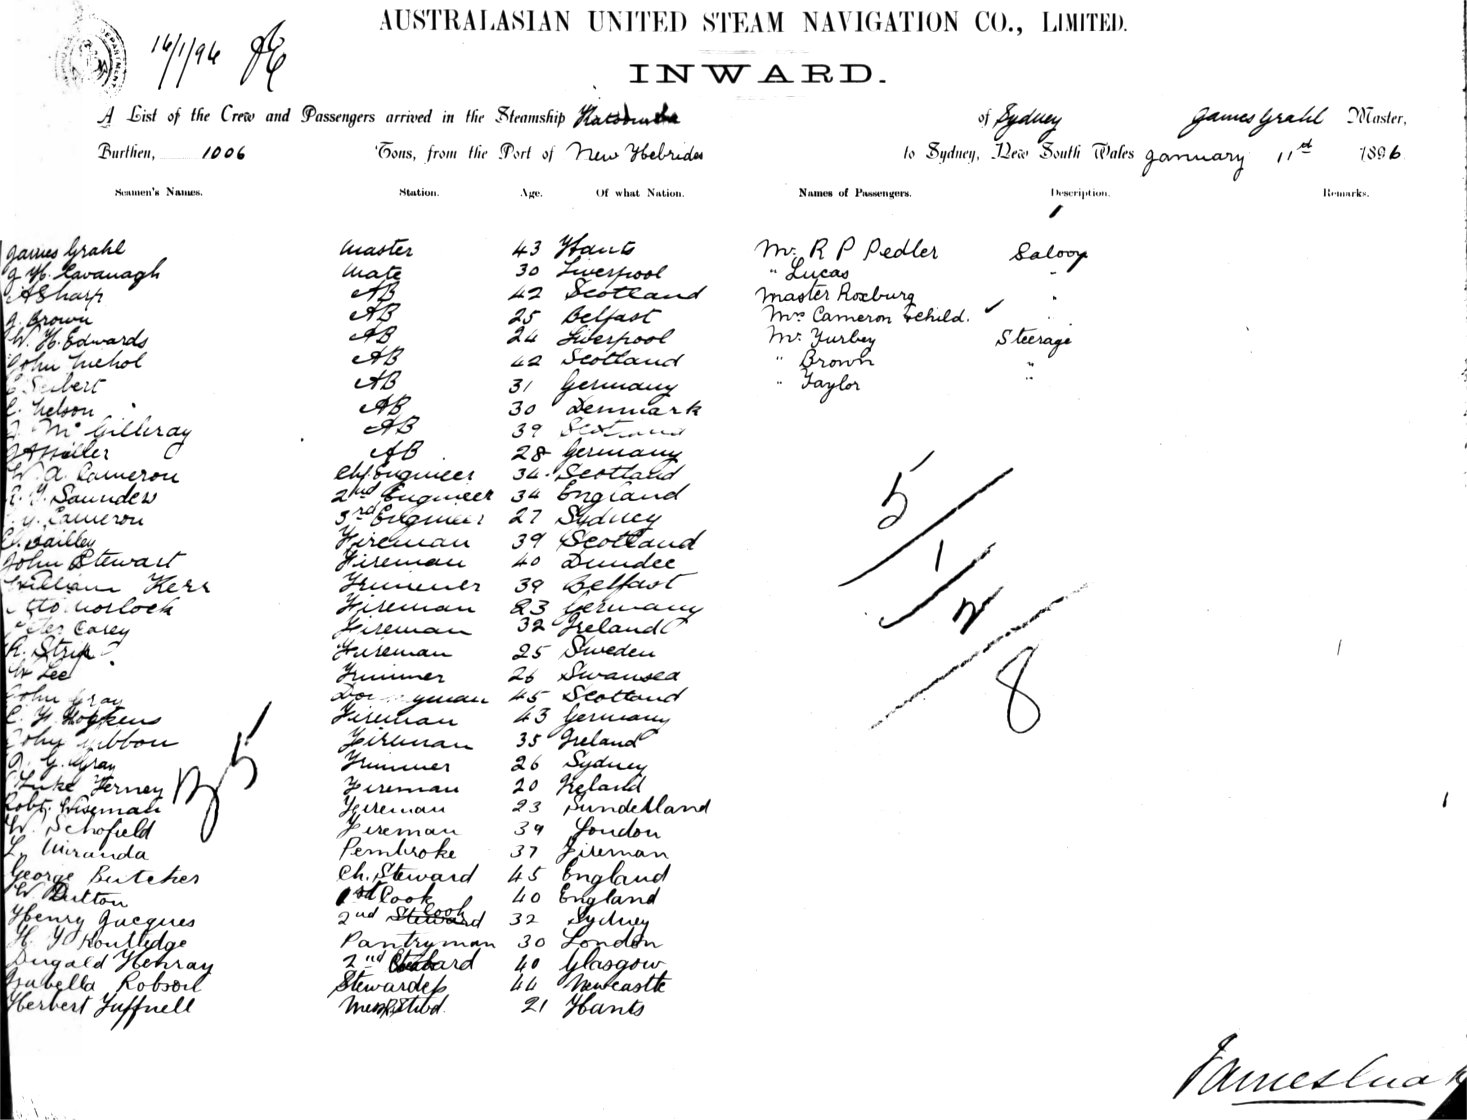 AUSTRALASIAN UNITED STEAM NAVIGATION CO., LIMITED.
16/1/96
INWARD.
A List of the Crew and Passengers arrived in the Steamship of Sydney James Grahl Master,
Burthen, 1006 Tons, from the Port of New Hebrides to Sydney, New South Wales January 11th 1896
Seamen's Names. Station. Age. Of what Nation. Names of Passengers. Description. Remarks.
James Grahl Master 43 Hants Mr. R P Pedler Saloon
J H. Cavanagh Mate 30 Liverpool " Lucas "
A Sharp AB 42 Scotland Master Roxburg "
J. Brown AB 25 Belfast Mrs Cameron & child. ✓
W. H. Edwards AB 24 Liverpool Mr. Steerage
John Nichol AB 42 Scotland " Brown "
Seibert AB 31 Germany " Taylor "
Nelson AB 30 Denmark
McGilleray AB 39 Scotland
J A Miller AB 28 Germany
W. A. Cameron Chf. Engineer 34 Scotland
Saunders 2nd Engineer 34 England
Cameron 3rd Engineer 27 Sydney
Bailley Fireman 39 Scotland
John Stewart Fireman 40 Dundee
William Kerr Trimmer 39 Belfast
Otto Fireman 23 Germany
Peter Carey Fireman 32 Ireland
R. Fireman 25 Sweden
W Lee Trimmer 26 Swansea
John Gray 45 Scotland
Hopkens Fireman 43 Germany
John Gibbon Fireman 35 Ireland
G. Gray Trimmer 26 Sydney
Luke Ferney Fireman 20 Ireland
Robt. Wiseman Fireman 23 Sunderland
W. Schofield Fireman 39 London
L. Miranda Pembroke 37 Fireman
George Butcher Ch. Steward 45 England
W Dutton 1st Cook 40 England
Henry Jacques 2nd Cook 32 Sydney
H. Routledge Pantryman 30 London
Dugald 2nd 40 Glasgow
Isabella Robson Stewardess 44 Newcastle
Herbert Tuffnell Mess Stwd. 21 Hants
5/
1/
2/
8
James Grahl